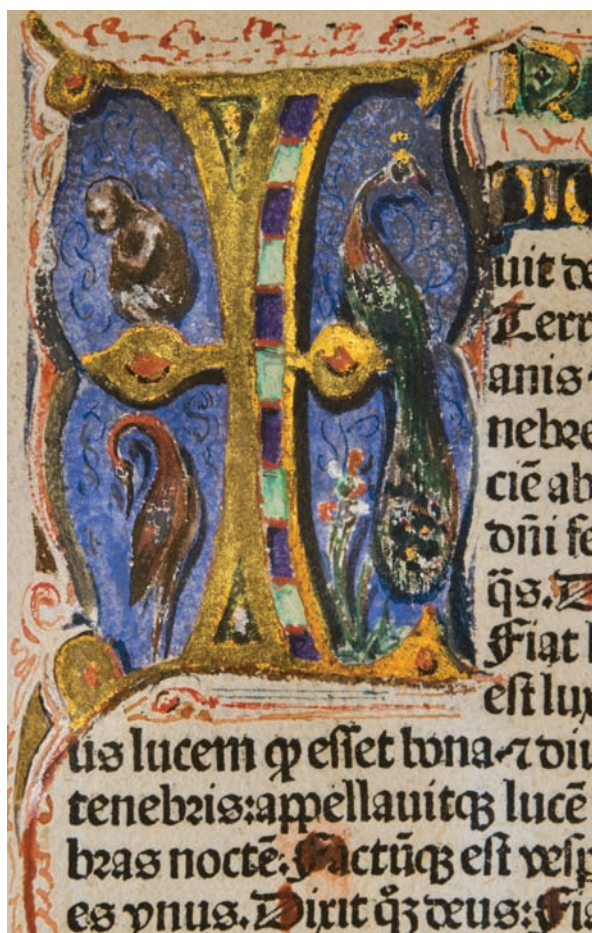 I
uit de
Terr
anis
nebre
ciē ab
dñi fe
q̄s. D
Fiat l
est lux
us lucem ꝙ esset bona ⁊ diu
tenebris: appellauitqꝫ lucē
bras noctē. Factūqꝫ est vesp
es vnus. Dixit q̊ꝫ deus: Fia